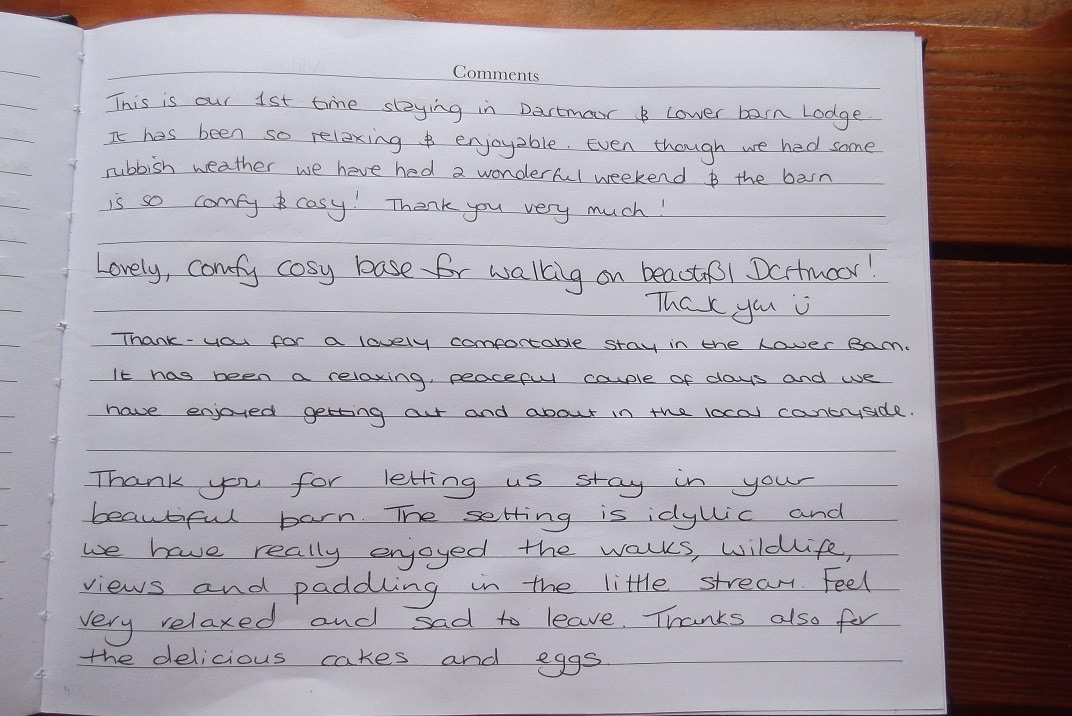 Comments
This is our 1st time staying in Dartmoor & Lower barn Lodge.
It has been so relaxing & enjoyable. Even though we had some
rubbish weather we have had a wonderful weekend & the barn
is so comfy & cosy! Thank you very much!
Lovely, comfy cosy base for walking on beautiful Dartmoor!
Thank you
Thank-you for a lovely comfortable stay in the Lower Barn.
It has been a relaxing, peaceful couple of days and we
have enjoyed getting out and about in the local countryside.
Thank you for letting us stay in your
beautiful barn. The setting is idyllic and
we have really enjoyed the walks, wildlife,
views and paddling in the little stream. Feel
very relaxed and sad to leave. Thanks also for
the delicious cakes and eggs.